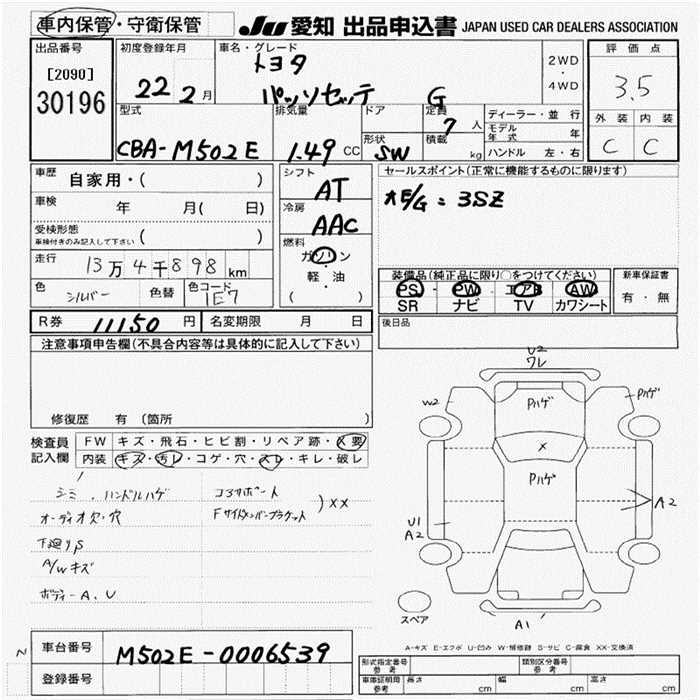 車内保管・守衛保管
JU 愛知 出品申込書 JAPAN USED CAR DEALERS ASSOCIATION
出品番号
[2090]
30196
初度登録年月
22 2月
車名・グレード
トヨタ
パッソセッテ G
2WD
・
4WD
評価点
3.5
外装 内装
C C
型式
CBA-M502E
排気量
1.49 CC
ドア
形状
SW
定員
7人
積載
kg
ディーラー・並行
モデル年式 年
ハンドル 左・右
車歴 自家用・( )
車検 年 月( 日)
受検形態
車検付きのみ記入して下さい ( )
走行 13万4千898km
色 シルバー 色替 色コード 1E7
シフト
AT
冷房
AAC
燃料
ガソリン
・
軽・油
( )
セールスポイント(正常に機能するものに限ります)
E/G=3SZ
装備品(純正品に限り○をつけてください)
PS・PW・エアB・AW
SR ナビ TV カワシート
新車保証書
有・無
R券 11150円 名変期限 月 日
後日品
注意事項申告欄(不具合内容等は具体的に記入して下さい)
修復歴 有 (箇所 )
検査員
記入欄
FW キズ・飛石・ヒビ割・リペア跡・X要
内装 キズ・汚レ・コゲ・穴・スレ・キレ・破レ
シミ、ハンドルハゲ
オーディオ欠・穴
下廻りS
A/Wキズ
ボディーA、U
コアサポート
Fサイドメンバーブラケット
)XX
U2
ワレ
W2
Pハゲ
Pハゲ
X
Pハゲ
U1
A2
A2
スペア
A1
A-キズ E-エクボ U-凹み W-補修跡 S-サビ C-腐食 XX-交換済
車台番号 M502E-0006539
登録番号
型式指定番号
参考
類別区分番号
参考
車庫証明用
参考
長さ cm 幅 cm 高さ cm